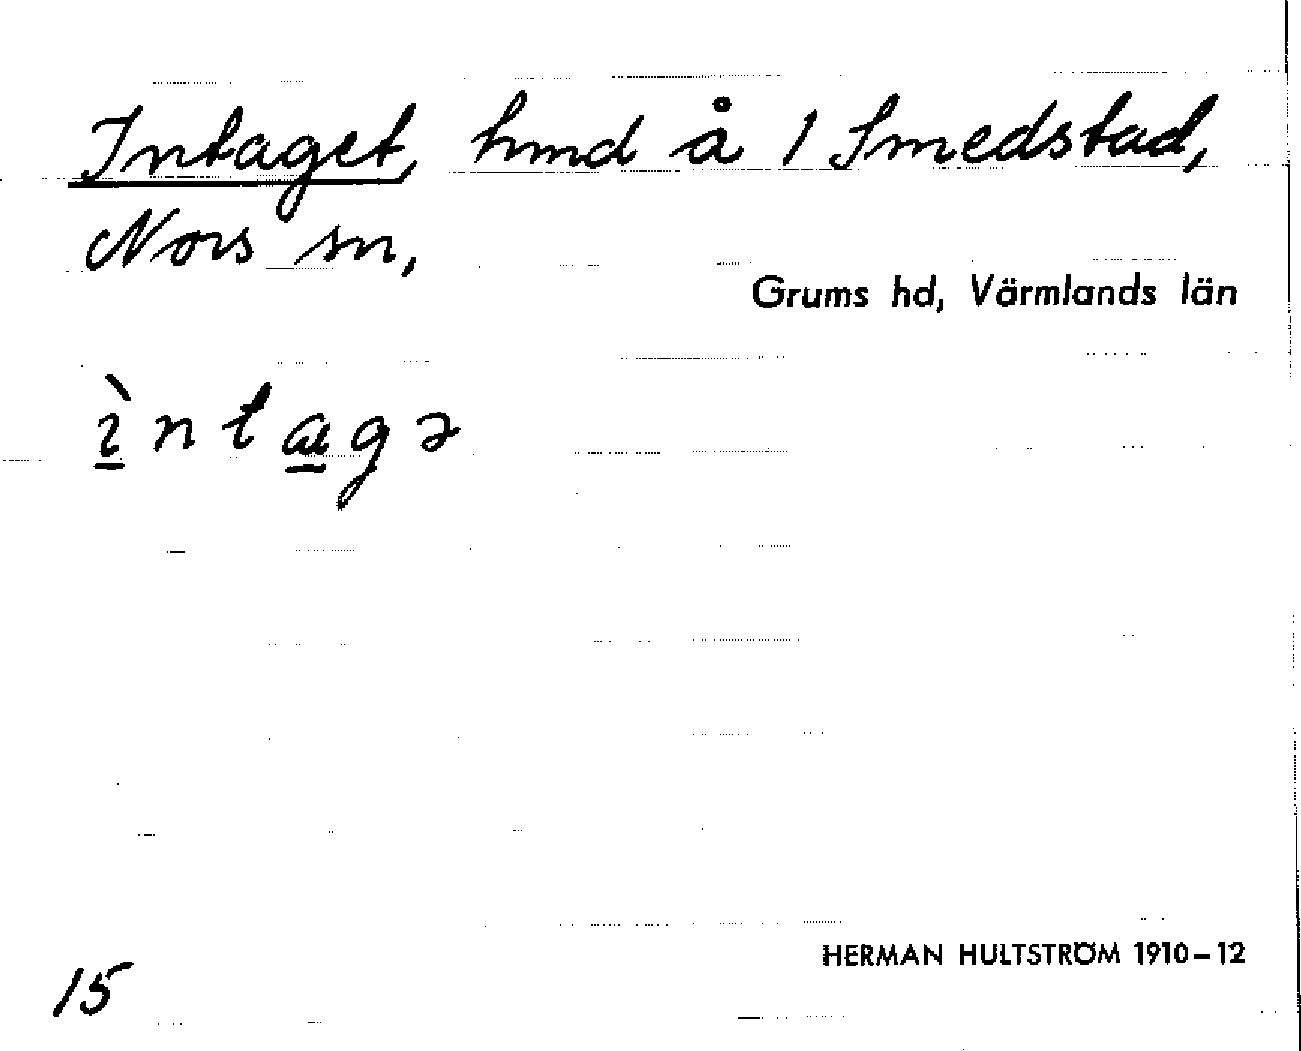 Intaget, hmd å 1 Smedstad,
Nors sn,
Grums hd, Värmlands län
ìntagə
HERMAN HULTSTRÖM 1910–12
15